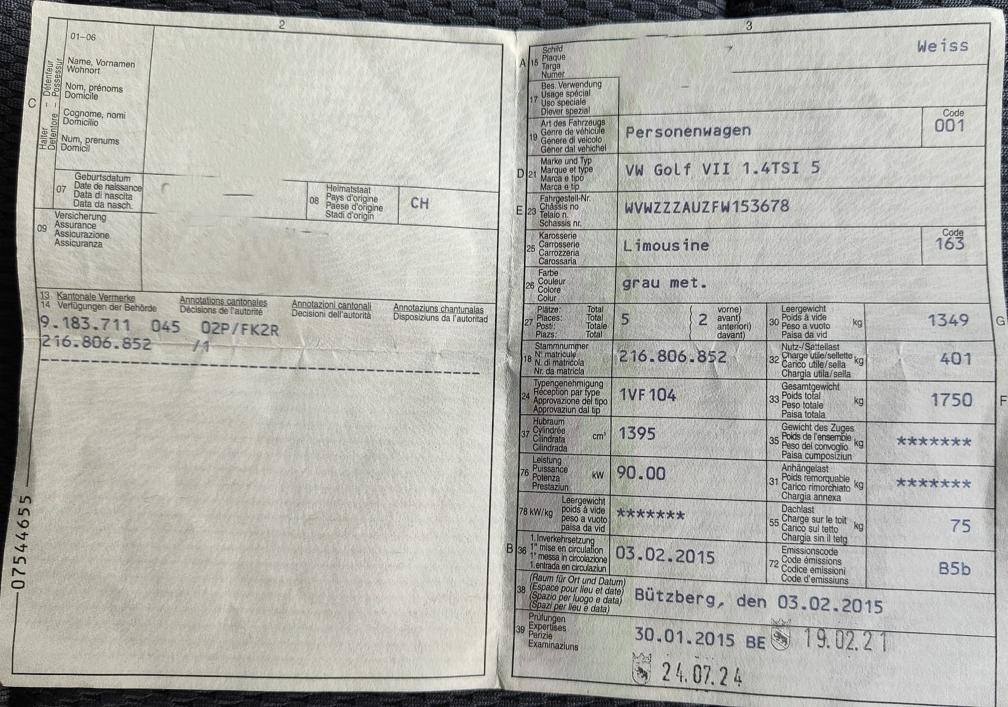 2
01-06
Name, Vornamen
Wohnort
Nom, prénoms
Domicile
Cognome, nomi
Domicilio
Num, prenums
Domicil
C
Halter – Détenteur
Detentore – Possessur
07
Geburtsdatum
Date de naissance
Data di nascita
Data da nasch.
08
Heimatstaat
Pays d'origine
Paese d'origine
Stadi d'origin
CH
09
Versicherung
Assurance
Assicurazione
Assicuranza
13 Kantonale Vermerke Annotations cantonales Annotazioni cantonali Annotaziuns chantunalas
14 Verfügungen der Behörde Décisions de l'autorité Decisioni dell'autorità Disposiziuns da l'autoritad
9.183.711 045 02P/FK2R
216.806.852 /1
07544655
3
A 15
Schild
Plaque
Targa
Numer
Weiss
17
Bes. Verwendung
Usage spécial
Uso speciale
Diever spezial
19
Art des Fahrzeugs
Genre de véhicule
Genere di veicolo
Gener dal vehichel
Personenwagen
Code
001
D 21
Marke und Typ
Marque et type
Marca e tipo
Marca e tip
VW Golf VII 1.4TSI 5
E 23
Fahrgestell-Nr.
Châssis no
Telaio n.
Schassis nr.
WVWZZZAUZFW153678
25
Karosserie
Carrosserie
Carrozzeria
Carossaria
Limousine
Code
163
26
Farbe
Couleur
Colore
Colur
grau met.
27
Plätze: Total
Places: Total
Posti: Totale
Plazs: Total
5
2
vorne)
avant)
anteriori)
davant)
30
Leergewicht
Poids à vide
Peso a vuoto
Paisa da vid
kg
1349
G
18
Stammnummer
N° matricule
N. di matricola
Nr. da matricla
216.806.852
32
Nutz-/Sattellast
Charge utile/sellette
Carico utile/sella
Chargia utila/sella
kg
401
24
Typengenehmigung
Réception par type
Approvazione del tipo
Approvaziun dal tip
1VF104
33
Gesamtgewicht
Poids total
Peso totale
Paisa totala
kg
1750
F
37
Hubraum
Cylindrée
Cilindrata
Cilindrada
cm³
1395
35
Gewicht des Zuges
Poids de l'ensemble
Peso del convoglio
Paisa cumposiziun
kg
*******
76
Leistung
Puissance
Potenza
Prestaziun
kW
90.00
31
Anhängelast
Poids remorquable
Carico rimorchiato
Chargia annexa
kg
*******
78 kW/kg
Leergewicht
poids à vide
peso a vuoto
paisa da vid
*******
55
Dachlast
Charge sur le toit
Carico sul tetto
Chargia sin il tetg
kg
75
B 36
1. Inverkehrsetzung
1re mise en circulation
1a messa in circolazione
1. entrada en circulaziun
03.02.2015
72
Emissionscode
Code émissions
Codice emissioni
Code d'emissiuns
B5b
38
(Raum für Ort und Datum)
(Espace pour lieu et date)
(Spazio per luogo e data)
(Spazi per lieu e data)
Bützberg, den 03.02.2015
39
Prüfungen
Expertises
Perizie
Examinaziuns
30.01.2015 BE 19.02.21
24.07.24